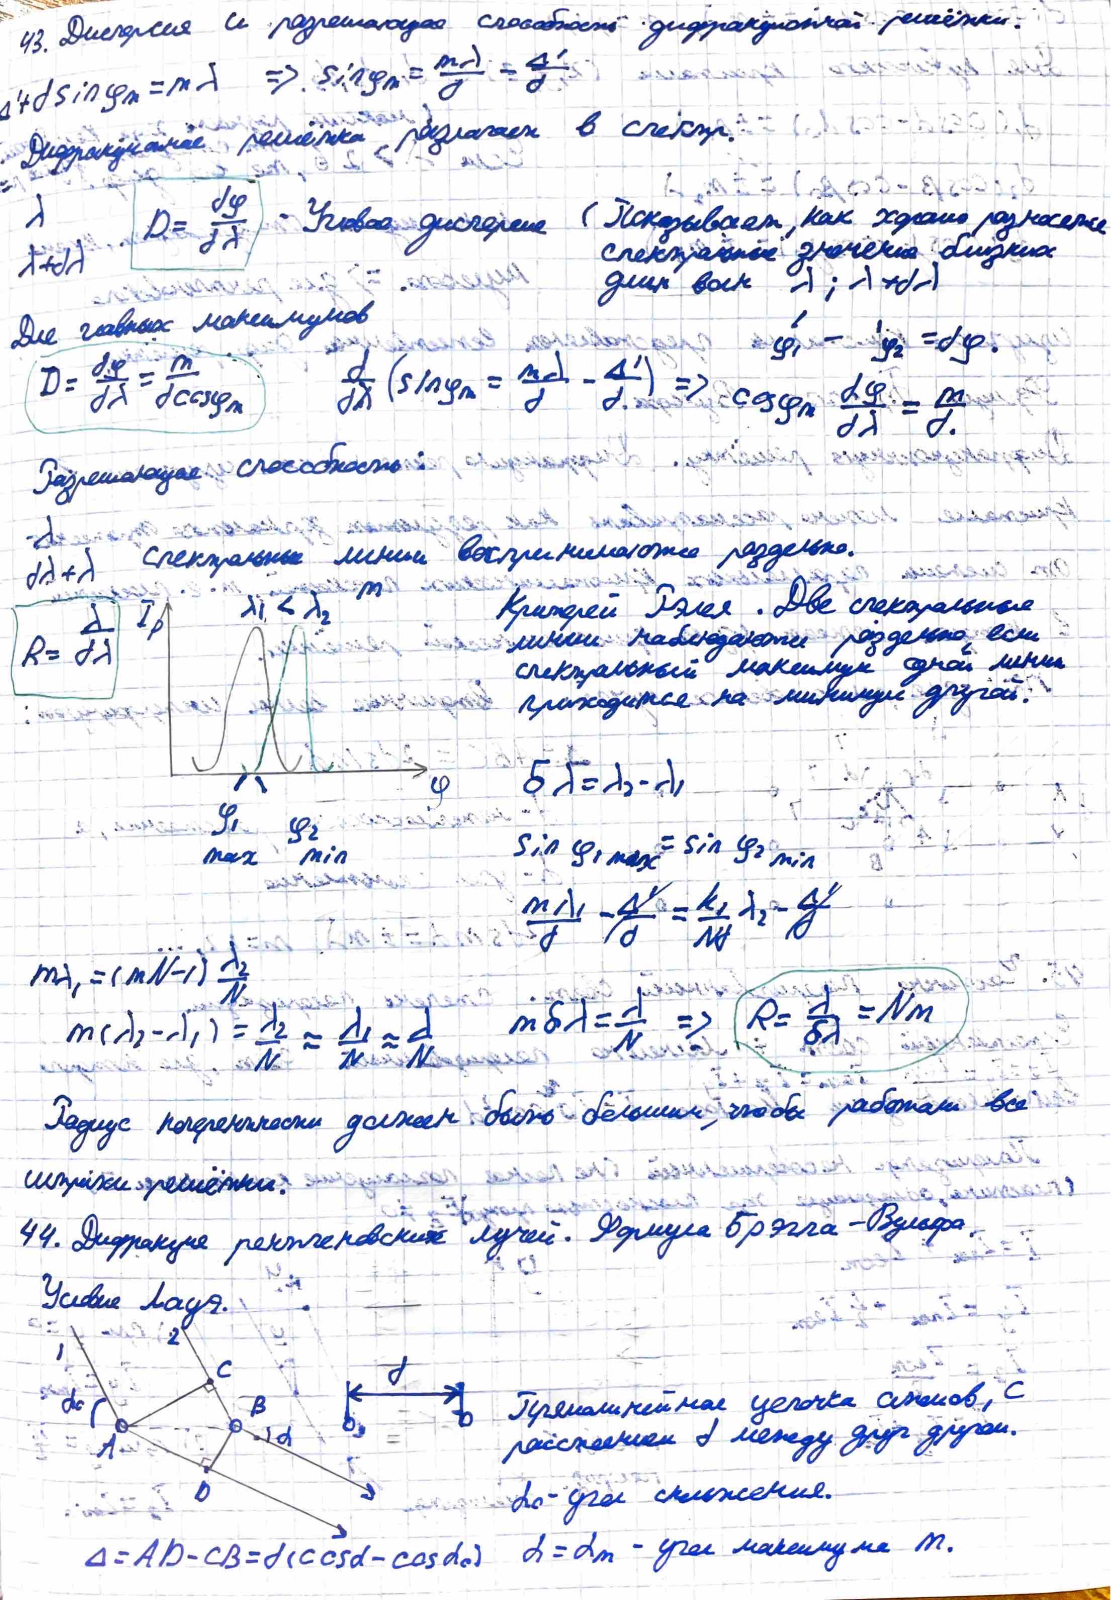 43. Дисперсия и разрешающая способность дифракционной решётки.
Δ'+d sinφm = mλ => sinφm = mλ/d - Δ'/d
Дифракционная решётка разлагает в спектр.
λ
λ+dλ
D = dφ/dλ - Угловая дисперсия (Показывает, как хорошо разносятся
спектральные значения близких
длин волн λ; λ+dλ
Для главных максимумов
φ1' - φ2' = dφ.
D = dφ/dλ = m/(d cosφm)
d/dλ (sinφm = mλ/d - Δ'/d) => cosφm dφ/dλ = m/d.
Разрешающая способность:
λ
dλ+λ спектральные линии воспринимаются раздельно.
R = λ/dλ
Iр
λ1 < λ2
m
φ
φ1 φ2
max min
Критерий Рэлея. Две спектральные
линии наблюдаются раздельно, если
спектральный максимум одной линии
приходится на минимум другой.
δλ = λ2 - λ1
sin φ1 max = sin φ2 min
mλ1/d - Δ'/d = k1/Nd λ2 - Δ'/d
mλ1 = (mN-1) λ2/N
m(λ2 - λ1) = λ2/N ≈ λ1/N ≈ λ/N
mδλ = λ/N => R = λ/δλ = Nm
Радиус когерентности должен быть большим, чтобы работали все
штрихи решётки.
44. Дифракция рентгеновских лучей. Формула Брэгга-Вульфа.
Условие Лауэ.
1 2
α0
A B C D
α
d
Прямолинейная цепочка атомов, с
расстоянием d между друг другом.
α0 - угол скольжения.
Δ = AD - CB = d(cosα - cosα0)
α = αm - угол максимума m.